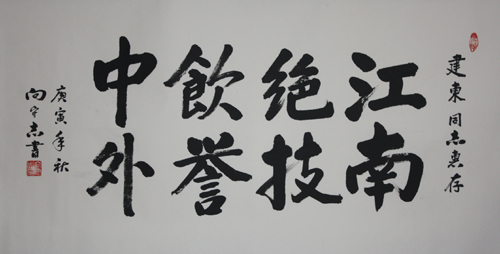 建東同志惠存
江南
绝技
飲誉
中外
庚寅年秋
向守志書